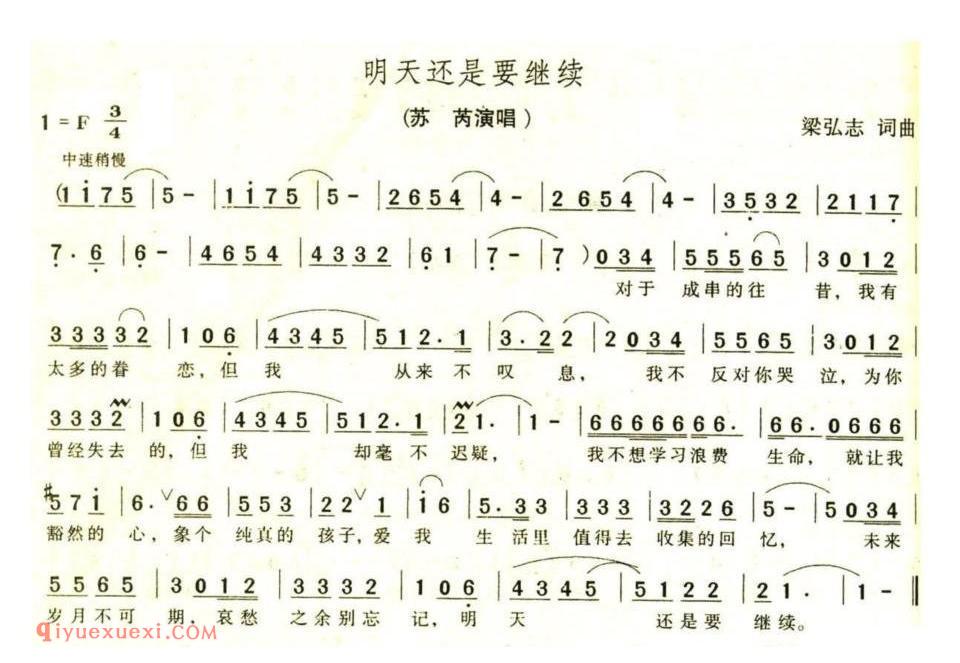 明天还是要继续
(苏 芮演唱)
1 = F 3/4
梁弘志 词曲
中速稍慢
(1 i 7 5 | 5 - | 1 i 7 5 | 5 - | 2 6 5 4 | 4 - | 2 6 5 4 | 4 - | 3 5 3 2 | 2 1 1 7 |
7 · 6 | 6 - | 4 6 5 4 | 4 3 3 2 | 6 1 | 7 - | 7 ) 0 3 4 | 5 5 5 5 6 5 | 3 0 1 2 |
对于 成串的往 昔, 我有
3 3 3 3 3 2 | 1 0 6 | 4 3 4 5 | 5 1 2 · 1 | 3 · 2 2 | 2 0 3 4 | 5 5 6 5 | 3 0 1 2 |
太多的眷 恋, 但 我 从来 不 叹 息, 我不 反对你哭 泣, 为你
3 3 3 2 | 1 0 6 | 4 3 4 5 | 5 1 2 · 1 | 2 1 · | 1 - | 6 6 6 6 6 6 6 · | 6 6 · 0 6 6 6 |
曾经失去 的, 但 我 却毫 不 迟疑, 我不想学习浪费 生命, 就让我
#5 7 i | 6 · ∨ 6 6 | 5 5 3 | 2 2 ∨ 1 | i 6 | 5 · 3 3 | 3 3 3 | 3 2 2 6 | 5 - | 5 0 3 4 |
豁然的 心, 象个 纯真的 孩子, 爱 我 生 活里 值得去 收集的回 忆, 未来
5 5 6 5 | 3 0 1 2 | 3 3 3 2 | 1 0 6 | 4 3 4 5 | 5 1 2 2 | 2 1 · | 1 - ‖
岁月不可 期, 哀愁 之余别忘 记, 明 天 还是要 继续。
qiyuexuexi.COM